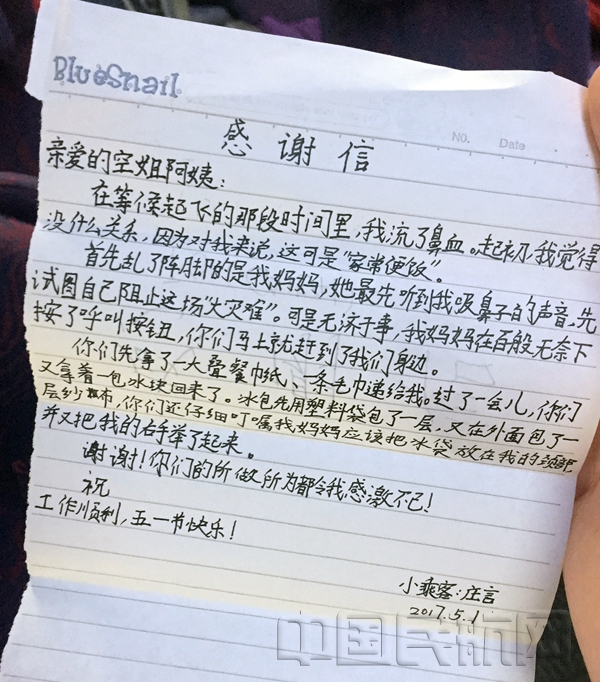 BlueSnail
NO.
Date
感谢信
亲爱的空姐阿姨：
在等侯起飞的那段时间里，我流了鼻血。起初，我觉得
没什么关系，因为对我来说，这可是“家常便饭”。
首先乱了阵脚的是我妈妈，她最先听到我吸鼻子的声音，先
试图自己阻止这场“大灾难”。可是无济于事，我妈妈在百般无奈下
按了呼叫按钮，你们马上就赶到了我们身边。
你们先拿了一大叠餐巾纸、一条毛巾递给我。过了一会儿，你们
又拿着一包冰块回来了。冰包先用塑料袋包了一层，又在外面包了一
层纱布，你们还仔细叮嘱我妈妈应该把冰袋放在我的颈部
并又把我的右手举了起来。
谢谢！你们的所做所为都令我感激不已！
祝
工作顺利，五一节快乐！
小乘客：庄言
2017.5.1
中国民航网